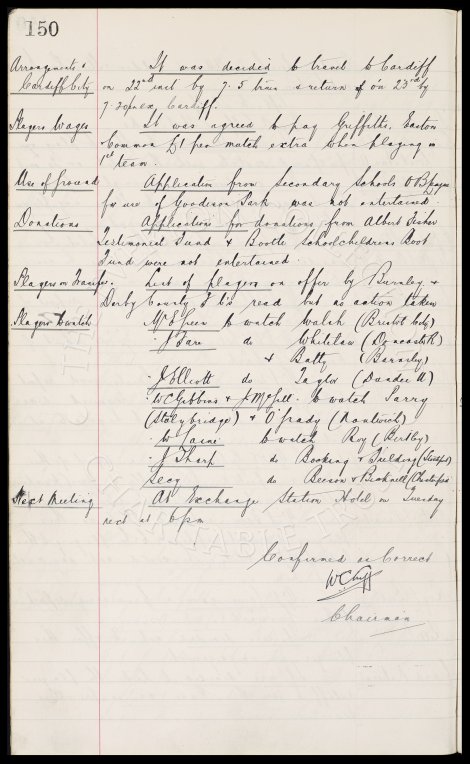 150
Arrangements
Cardiff City
It was decided to travel to Cardiff
on 22nd inst by 7.5 train & return on 23rd by
7-30 p ex Cardiff.
Players Wages
It was agreed to pay Griffiths, Easton
& Common £1 per match extra when playing in
1st team.
Use of Ground
Application from Secondary Schools O B League
for use of Goodison Park was not entertained.
Donations
Application for donations from Albert Fisher
Testimonial Fund & Bootle Schoolchildrens Boot
Fund were not entertained.
Players on Transfer.
List of players on offer by Burnley &
Derby County F Co read but no action taken
Players to watch
Mr E Green to watch Walsh (Bristol City)
" J Fare do Whitelaw (Doncaster)
& Batty (Barnsley)
J Elliott do Taylor (Dundee U)
" W C Gibbins & J McGill to watch Sarry
(Stalybridge) & O'Grady (Nantwich)
" W Caine to watch Roy (Birtley)
" J Sharp do Bocking & Fielding (Stockport)
Secy do Beeson & Bicknell (Chesterfield)
Next Meeting
At Exchange Station Hotel on Tuesday
next at 6 pm
Confirmed as Correct
W C Cuff
Chairman
CHARITABLE TR